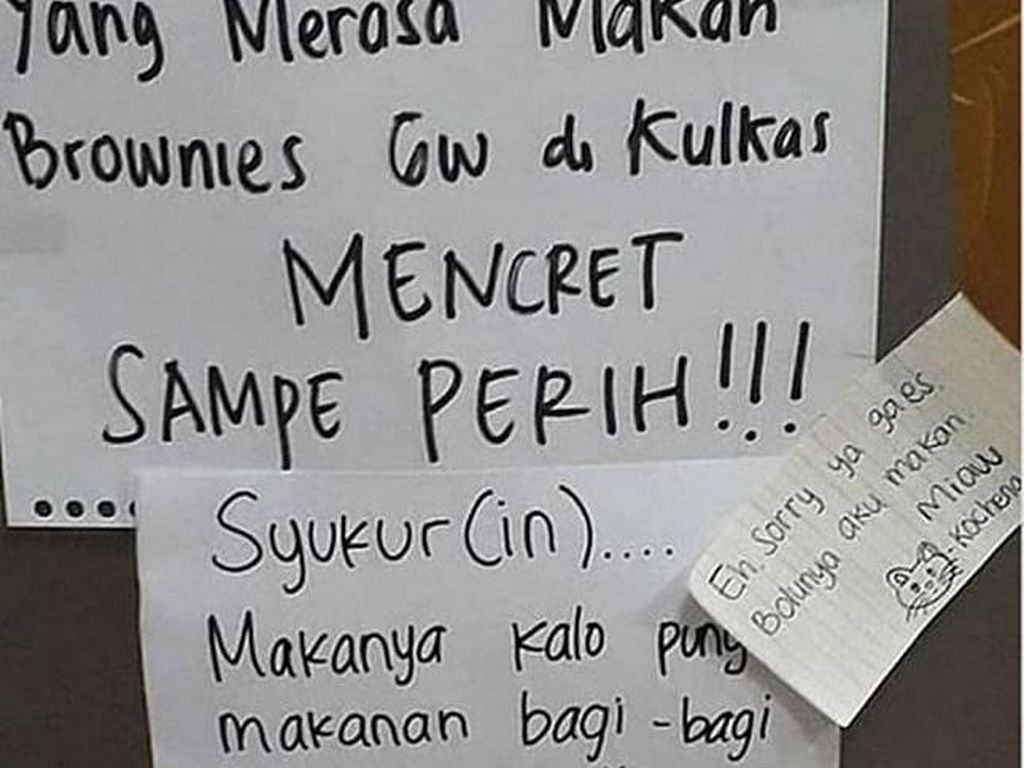 Yang Merasa Makan
Brownies Gw di Kulkas
MENCRET
SAMPE PERIH!!!
Syukur(in)....
Makanya kalo
makanan bagi-bagi
Eh. Sorry ya gaes.
Bolunya aku makan.
Miaw
-Kocheng